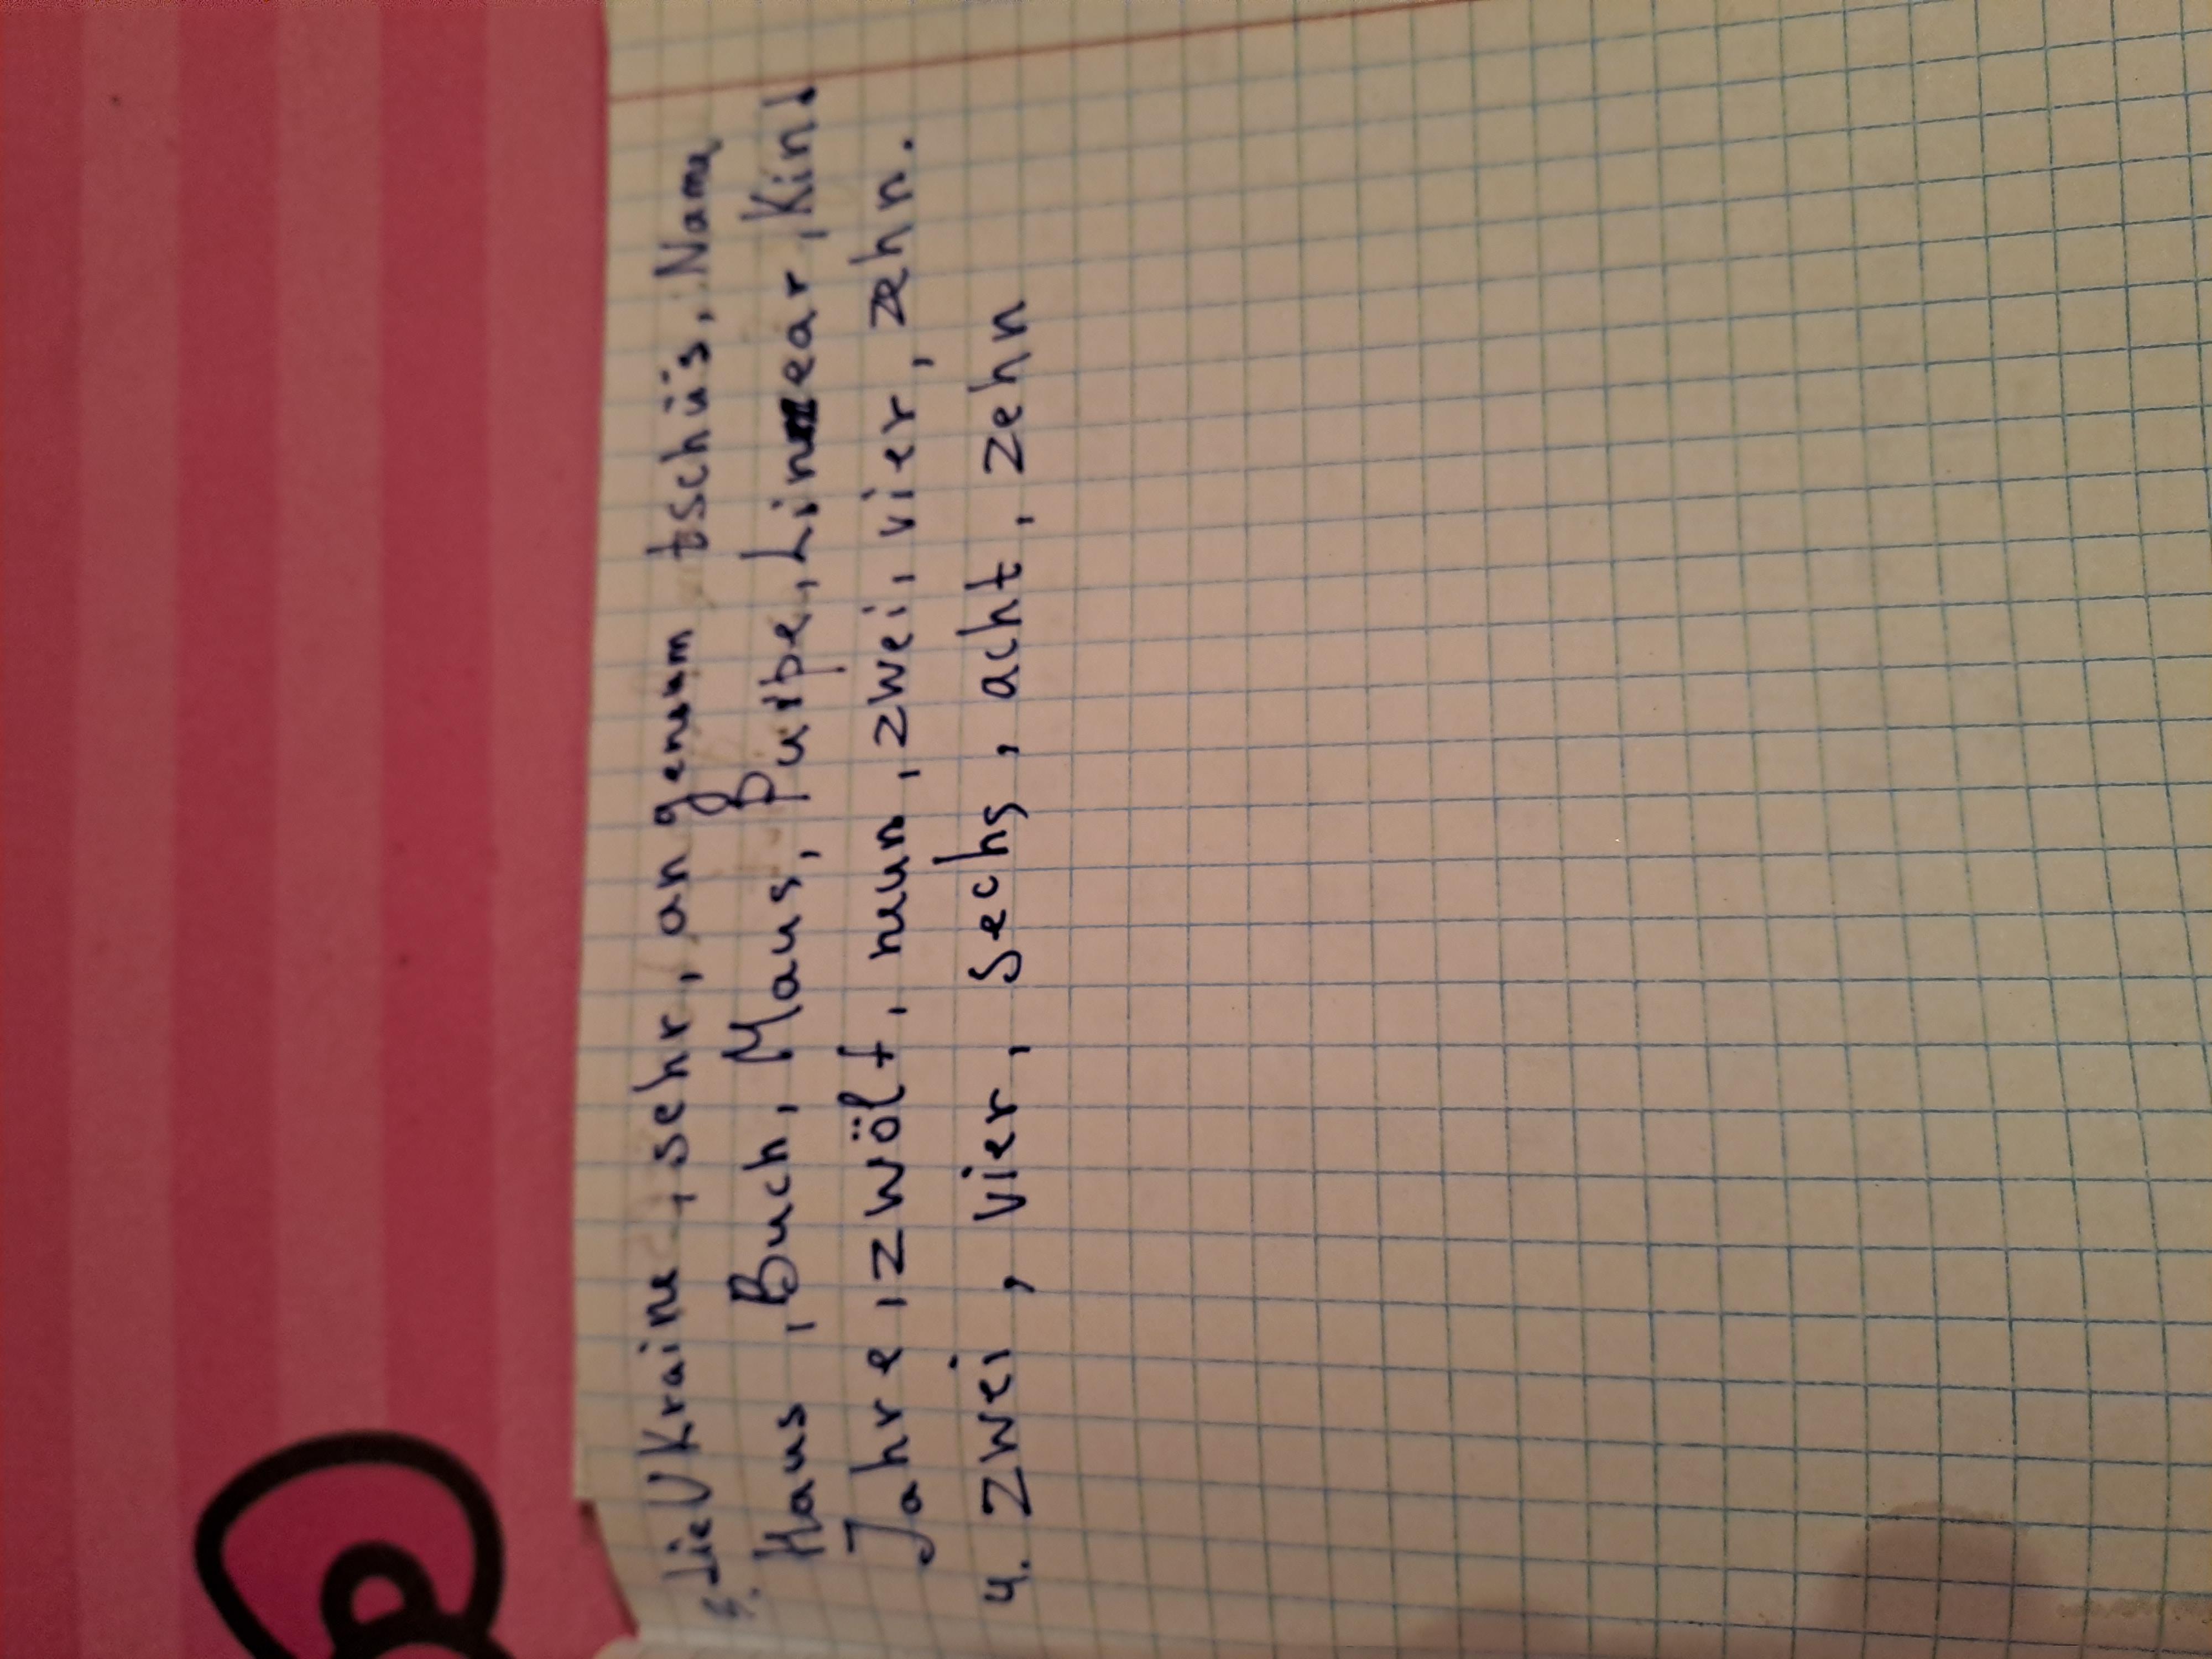 3. Die Ukraine, sehr, angenem, tschüs, Name
Haus, Buch, Maus, Puppe, Linear, Kind
Jahre, zwölf, neun, zwei, vier, zehn.
4. Zwei, vier, sechs, acht, zehn